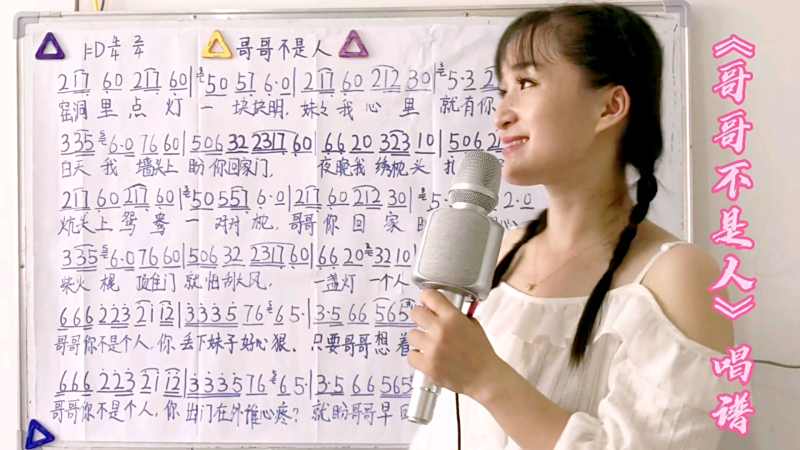 1=D 4/4 2/4 哥哥不是人
2 1 7 6 0 2 1 7 6 0 | 5 0 5 1 6·0 | 2 1 7 6 0 2 1 2 3 0 | 5·3 2
窑洞里点灯一块块明,妹妹我心里就有你
3 3 5 6·0 7 6 6 0 | 5 0 6 3 2 2 3 1 7 6 0 | 6 6 2 0 3 2 3 1 0 | 5 0 6 2
白天我墙头上盼你回家门,夜晚我绣枕头
2 1 7 6 0 2 1 7 6 0 | 5 0 5 5 1 6·0 | 2 1 7 6 0 2 1 2 3 0 | 5· 2·0
炕头上鸳鸯一对对枕,哥哥你回家
3 3 5 6·0 7 6 6 0 | 5 0 6 3 2 2 3 1 7 6 0 | 6 6 2 0 3 2 1 0
柴火棍顶住门就怕刮大风,一盏灯一个人
6 6 6 2 2 3 2 1 1 2 | 3 3 3 5 7 6 6 5· | 3·5 6 6 5 6 5
哥哥你不是个人你丢下妹子好心狠,只要哥哥想着
6 6 6 2 2 3 2 1 1 2 | 3 3 3 5 7 6 6 5· | 3·5 6 6 5 6 5
哥哥你不是个人,你出门在外谁心疼?就盼哥哥早回
《哥哥不是人》唱谱